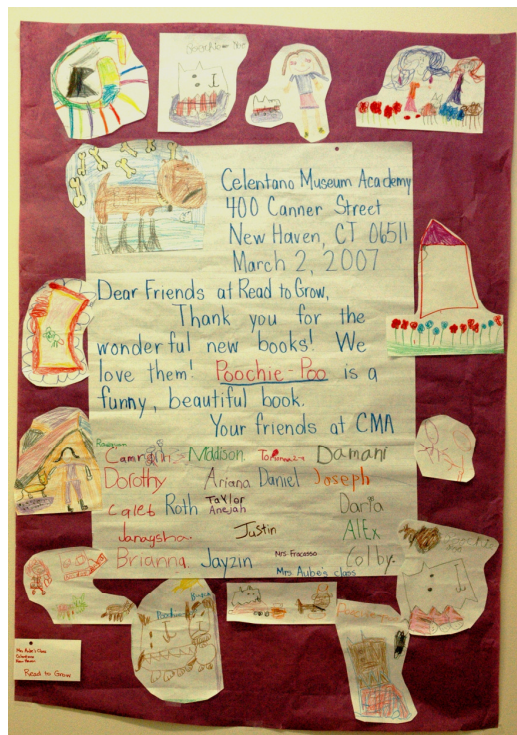 Celentano Museum Academy
400 Canner Street
New Haven, CT 06511
March 2, 2007
Dear Friends at Read to Grow,
Thank you for the
wonderful new books! We
love them! Poochie-Poo is a
funny, beautiful book.
Your friends at CMA
Madison Damani
Dorothy Ariana Daniel Joseph
Caleb Roth Taylor Daria
Anejah
Janaysha Justin AlEx
Brianna Jayzin Mrs. Fracasso Colby
Mrs Aube's class
Mrs Aube's Class
Celentano
New Haven
Read to Grow